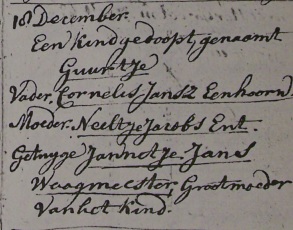 18 December.
Een Kind gedoopt, genaamt
Guurtje
Vader. Cornelis Jansz Eenhoorn.
Moeder. Neeltje Jacobs Ent.
Getuyge Jannetje Jans
Waagmeester, Grootmoeder
Van het Kind.